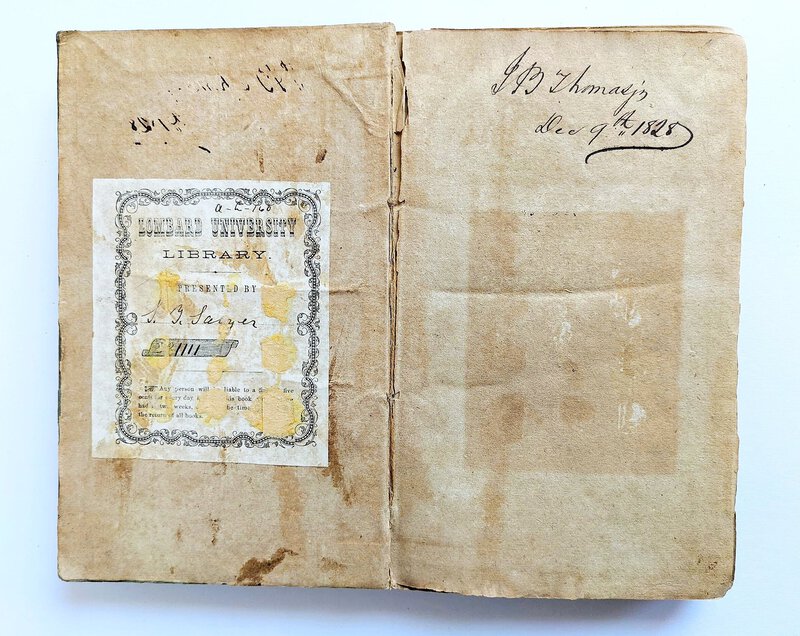 LOMBARD UNIVERSITY
LIBRARY.
PRESENTED BY
Sawyer
Any person will liable to a five
cents for every day book
had two weeks, be time
the return of all books.
J B Thomas jr
Dec 9th 1828